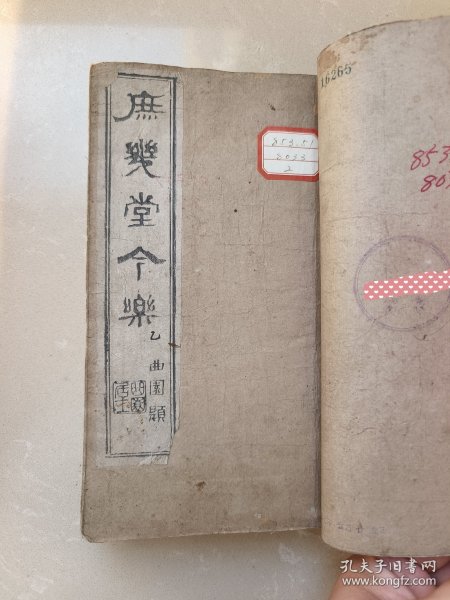 庶幾堂今樂
乙
曲園題
853.51
8033
2
16265
853
80
孔夫子旧书网
www.kongfz.com